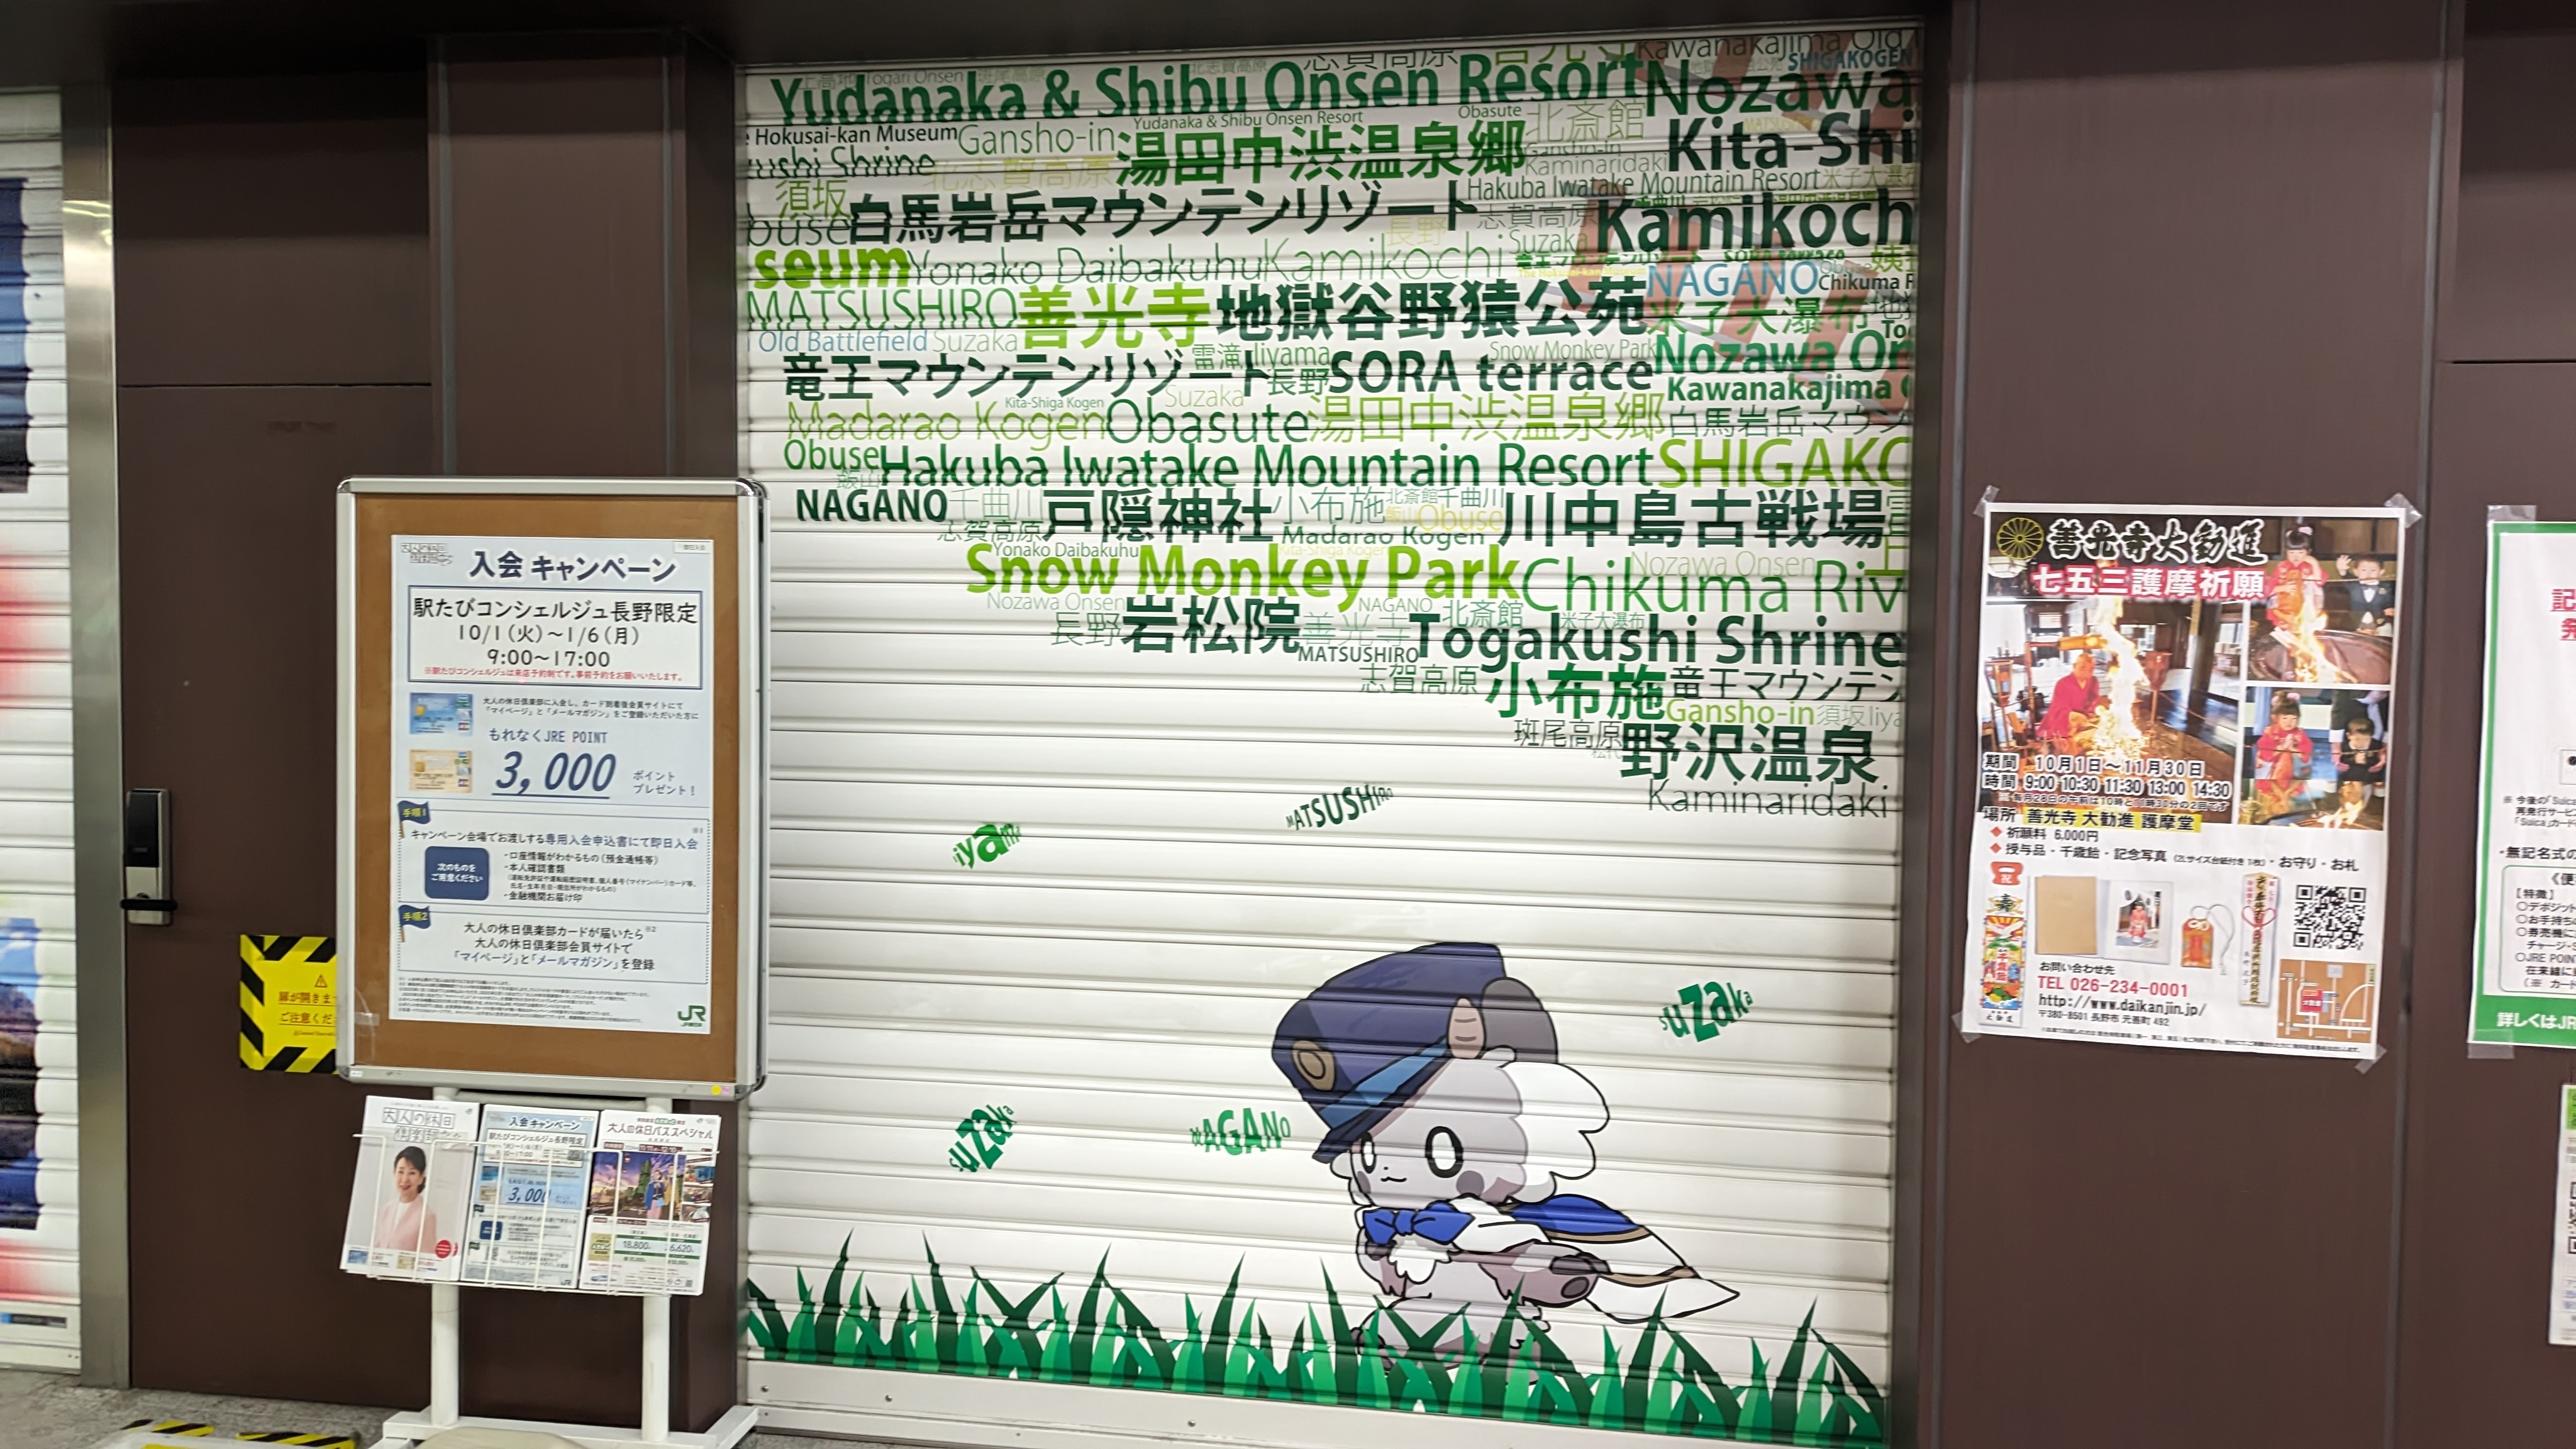 入会 キャンペーン
駅たびコンシェルジュ長野限定
10/1(火)～1/6(月)
9:00～17:00
※駅たびコンシェルジュは来店予約制です。事前予約をお願いいたします。
大人の休日倶楽部に入会し、カード到着後会員サイトにて
「マイページ」と「メールマガジン」をご登録いただいた方に
もれなくJRE POINT
3,000 ポイント
プレゼント!
手順1
キャンペーン会場でお渡しする専用入会申込書にて即日入会
次のものを
ご用意ください
・口座情報がわかるもの(預金通帳等)
・本人確認書類
・金融機関お届け印
手順2
大人の休日倶楽部カードが届いたら※2
大人の休日倶楽部会員サイトで
「マイページ」と「メールマガジン」を登録
JR
扉が開きま
ご注意くだ
大人の休日
入会 キャンペーン
駅たびコンシェルジュ長野限定
3,000
大人の休日パススペシャル
志賀高原 善光寺 Kawanakajima Old
Togari Onsen 斑尾高原 北志賀高原 SHIGAKOGEN
Yudanaka & Shibu Onsen Resort Nozawa
Hokusai-kan Museum Gansho-in Yudanaka & Shibu Onsen Resort Obasute 北斎館
ushi Shrine 北志賀高原 湯田中渋温泉郷 Gansho-in Kaminaridaki Kita-Shi
須坂 白馬岩岳マウンテンリゾート Hakuba Iwatake Mountain Resort 米子大瀑布
buse 長野 志賀高原 Suzaka Kamikoch
seum Yonako Daibakuhu Kamikochi SORA terrace
MATSUSHIRO 善光寺 地獄谷野猿公苑 NAGANO Obuse Chikuma R
米子大瀑布
Old Battlefield Suzaka 雷滝 Iiyama Snow Monkey Park Nozawa On
竜王マウンテンリゾート 長野 SORA terrace Kawanakajima
Kita-Shiga Kogen Suzaka
Madarao Kogen Obasute 湯田中渋温泉郷 白馬岩岳マウン
Obuse Hakuba Iwatake Mountain Resort SHIGAKO
飯山
NAGANO 千曲川 戸隠神社 小布施 北斎館 千曲川 川中島古戦場
志賀高原 Madarao Kogen Obuse
Yonako Daibakuhu Kita-Shiga Kogen Nozawa Onsen
Snow Monkey Park Chikuma Riv
Nozawa Onsen NAGANO 北斎館 米子大瀑布
長野 岩松院 善光寺 MATSUSHIRO Togakushi Shrine
志賀高原 小布施 竜王マウンテン
Gansho-in 須坂 Iiya
斑尾高原 野沢温泉
Kaminaridaki
MATSUSHIRO
iyama
suzaka
suzaka
NAGANO
善光寺大勧進
七五三護摩祈願
期間 10月1日～11月30日
時間 9:00 10:30 11:30 13:00 14:30
場所 善光寺 大勧進 護摩堂
◆ 祈願料 6,000円
◆ 授与品・千歳飴・記念写真(2Lサイズ台紙付き 1枚)・お守り・お札
お問い合わせ先
TEL 026-234-0001
http://www.daikanjin.jp/
〒380-8501 長野市 元善町 492
・無記名式の
【特徴】
○デポジット
○お手持ち
○券売機に
○JRE POIN
詳しくはJR